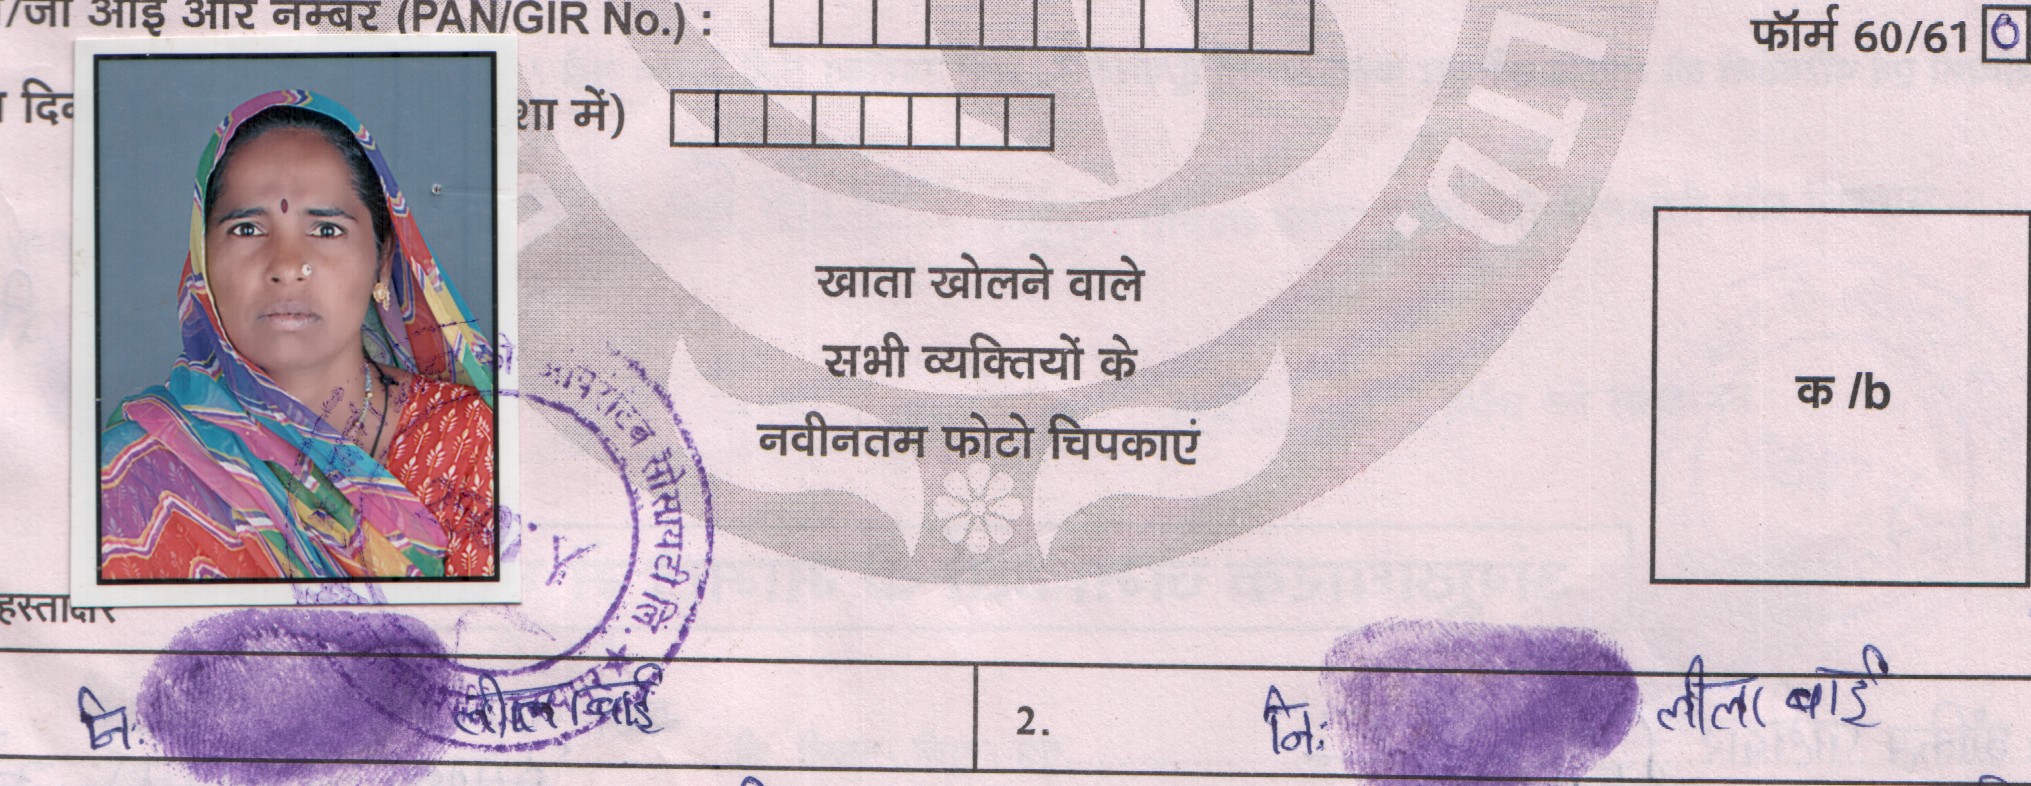 /जी आई आर नम्बर (PAN/GIR No.) :
फॉर्म 60/61
शा में)
LTD.
खाता खोलने वाले
सभी व्यक्तियों के
नवीनतम फोटो चिपकाएं
क /b
को आपरेटिव सोसायटी लि.
हस्ताक्षर
नि: लीला बाई
2. नि: लीला बाई